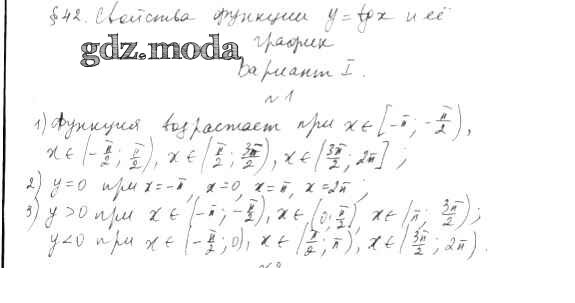 §42. Свойства функции y=tgx и её
график
gdz.moda
Вариант I.
№1
1) Функция возрастает при x∈[-π; -π/2),
x∈(-π/2; π/2), x∈(π/2; 3π/2), x∈(3π/2; 2π];
2) y=0 при x=-π, x=0, x=π, x=2π;
3) y>0 при x∈(-π; -π/2), x∈(0; π/2), x∈(π; 3π/2);
y<0 при x∈(-π/2; 0), x∈(π/2; π), x∈(3π/2; 2π).